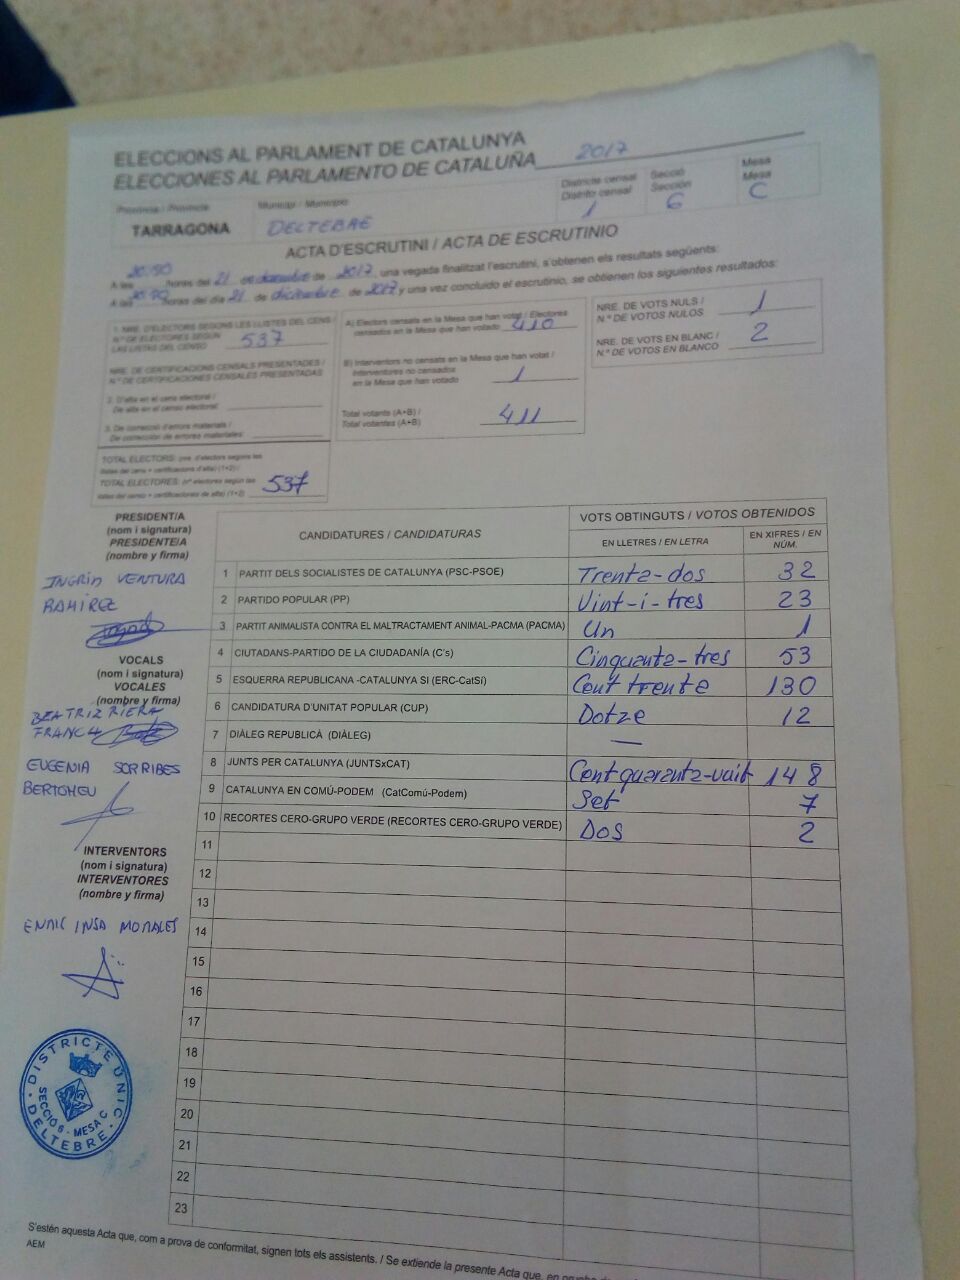 ELECCIONS AL PARLAMENT DE CATALUNYA
ELECCIONES AL PARLAMENTO DE CATALUÑA 2017
Província / Provincia
TARRAGONA
Municipi / Municipio
DELTEBRE
Districte censal
Distrito censal
1
Secció
Sección
6
Mesa
Mesa
C
ACTA D'ESCRUTINI / ACTA DE ESCRUTINIO
A les hores del 21 de desembre de 2017, una vegada finalitzat l'escrutini, s'obtenen els resultats següents:
A las horas del día 21 de diciembre de 2017 y una vez concluido el escrutinio, se obtienen los siguientes resultados:
1. NRE. D'ELECTORS SEGONS LES LLISTES DEL CENS /
N.º DE ELECTORES SEGÚN
LAS LISTAS DEL CENSO 537
NRE. DE CERTIFICACIONS CENSALS PRESENTADES /
N.º DE CERTIFICACIONES CENSALES PRESENTADAS
2. D'alta en el cens electoral /
De alta en el censo electoral:
3. De correcció d'errors materials /
De corrección de errores materiales:
TOTAL ELECTORS: (nre. d'electors segons les
llistes del cens + certificacions d'alta) (1+2) /
TOTAL ELECTORES: (nº electores según las
listas del censo + certificaciones de alta) (1+2) 537
A) Electors censats en la Mesa que han votat / Electores
censados en la Mesa que han votado 410
B) Interventors no censats en la Mesa que han votat /
Interventores no censados
en la Mesa que han votado 1
Total votants (A+B) /
Total votantes (A+B) 411
NRE. DE VOTS NULS /
N.º DE VOTOS NULOS 1
NRE. DE VOTS EN BLANC /
N.º DE VOTOS EN BLANCO 2
PRESIDENT/A
(nom i signatura)
PRESIDENTE/A
(nombre y firma)
INGRID VENTURA
RAMIREZ
VOCALS
(nom i signatura)
VOCALES
(nombre y firma)
BEATRIZ RIERA
FRANCH
EUGENIA SORRIBES
BERTOMEU
INTERVENTORS
(nom i signatura)
INTERVENTORES
(nombre y firma)
ENRIC INSA MORALES
DISTRICTE UNIC
SECCIÓ 6 - MESA C
DELTEBRE
CANDIDATURES / CANDIDATURAS
VOTS OBTINGUTS / VOTOS OBTENIDOS
EN LLETRES / EN LETRA
EN XIFRES / EN
NÚM.
1 PARTIT DELS SOCIALISTES DE CATALUNYA (PSC-PSOE) Trenta-dos 32
2 PARTIDO POPULAR (PP) Vint-i-tres 23
3 PARTIT ANIMALISTA CONTRA EL MALTRACTAMENT ANIMAL-PACMA (PACMA) Un 1
4 CIUTADANS-PARTIDO DE LA CIUDADANÍA (C's) Cinquanta-tres 53
5 ESQUERRA REPUBLICANA -CATALUNYA SI (ERC-CatSí) Cent trenta 130
6 CANDIDATURA D'UNITAT POPULAR (CUP) Dotze 12
7 DIÀLEG REPUBLICÀ (DIÀLEG) —
8 JUNTS PER CATALUNYA (JUNTSxCAT) Cent quaranta-vuit 148
9 CATALUNYA EN COMÚ-PODEM (CatComú-Podem) Set 7
10 RECORTES CERO-GRUPO VERDE (RECORTES CERO-GRUPO VERDE) Dos 2
11
12
13
14
15
16
17
18
19
20
21
22
23
S'estén aquesta Acta que, com a prova de conformitat, signen tots els assistents. / Se extiende la presente Acta que, en
AEM